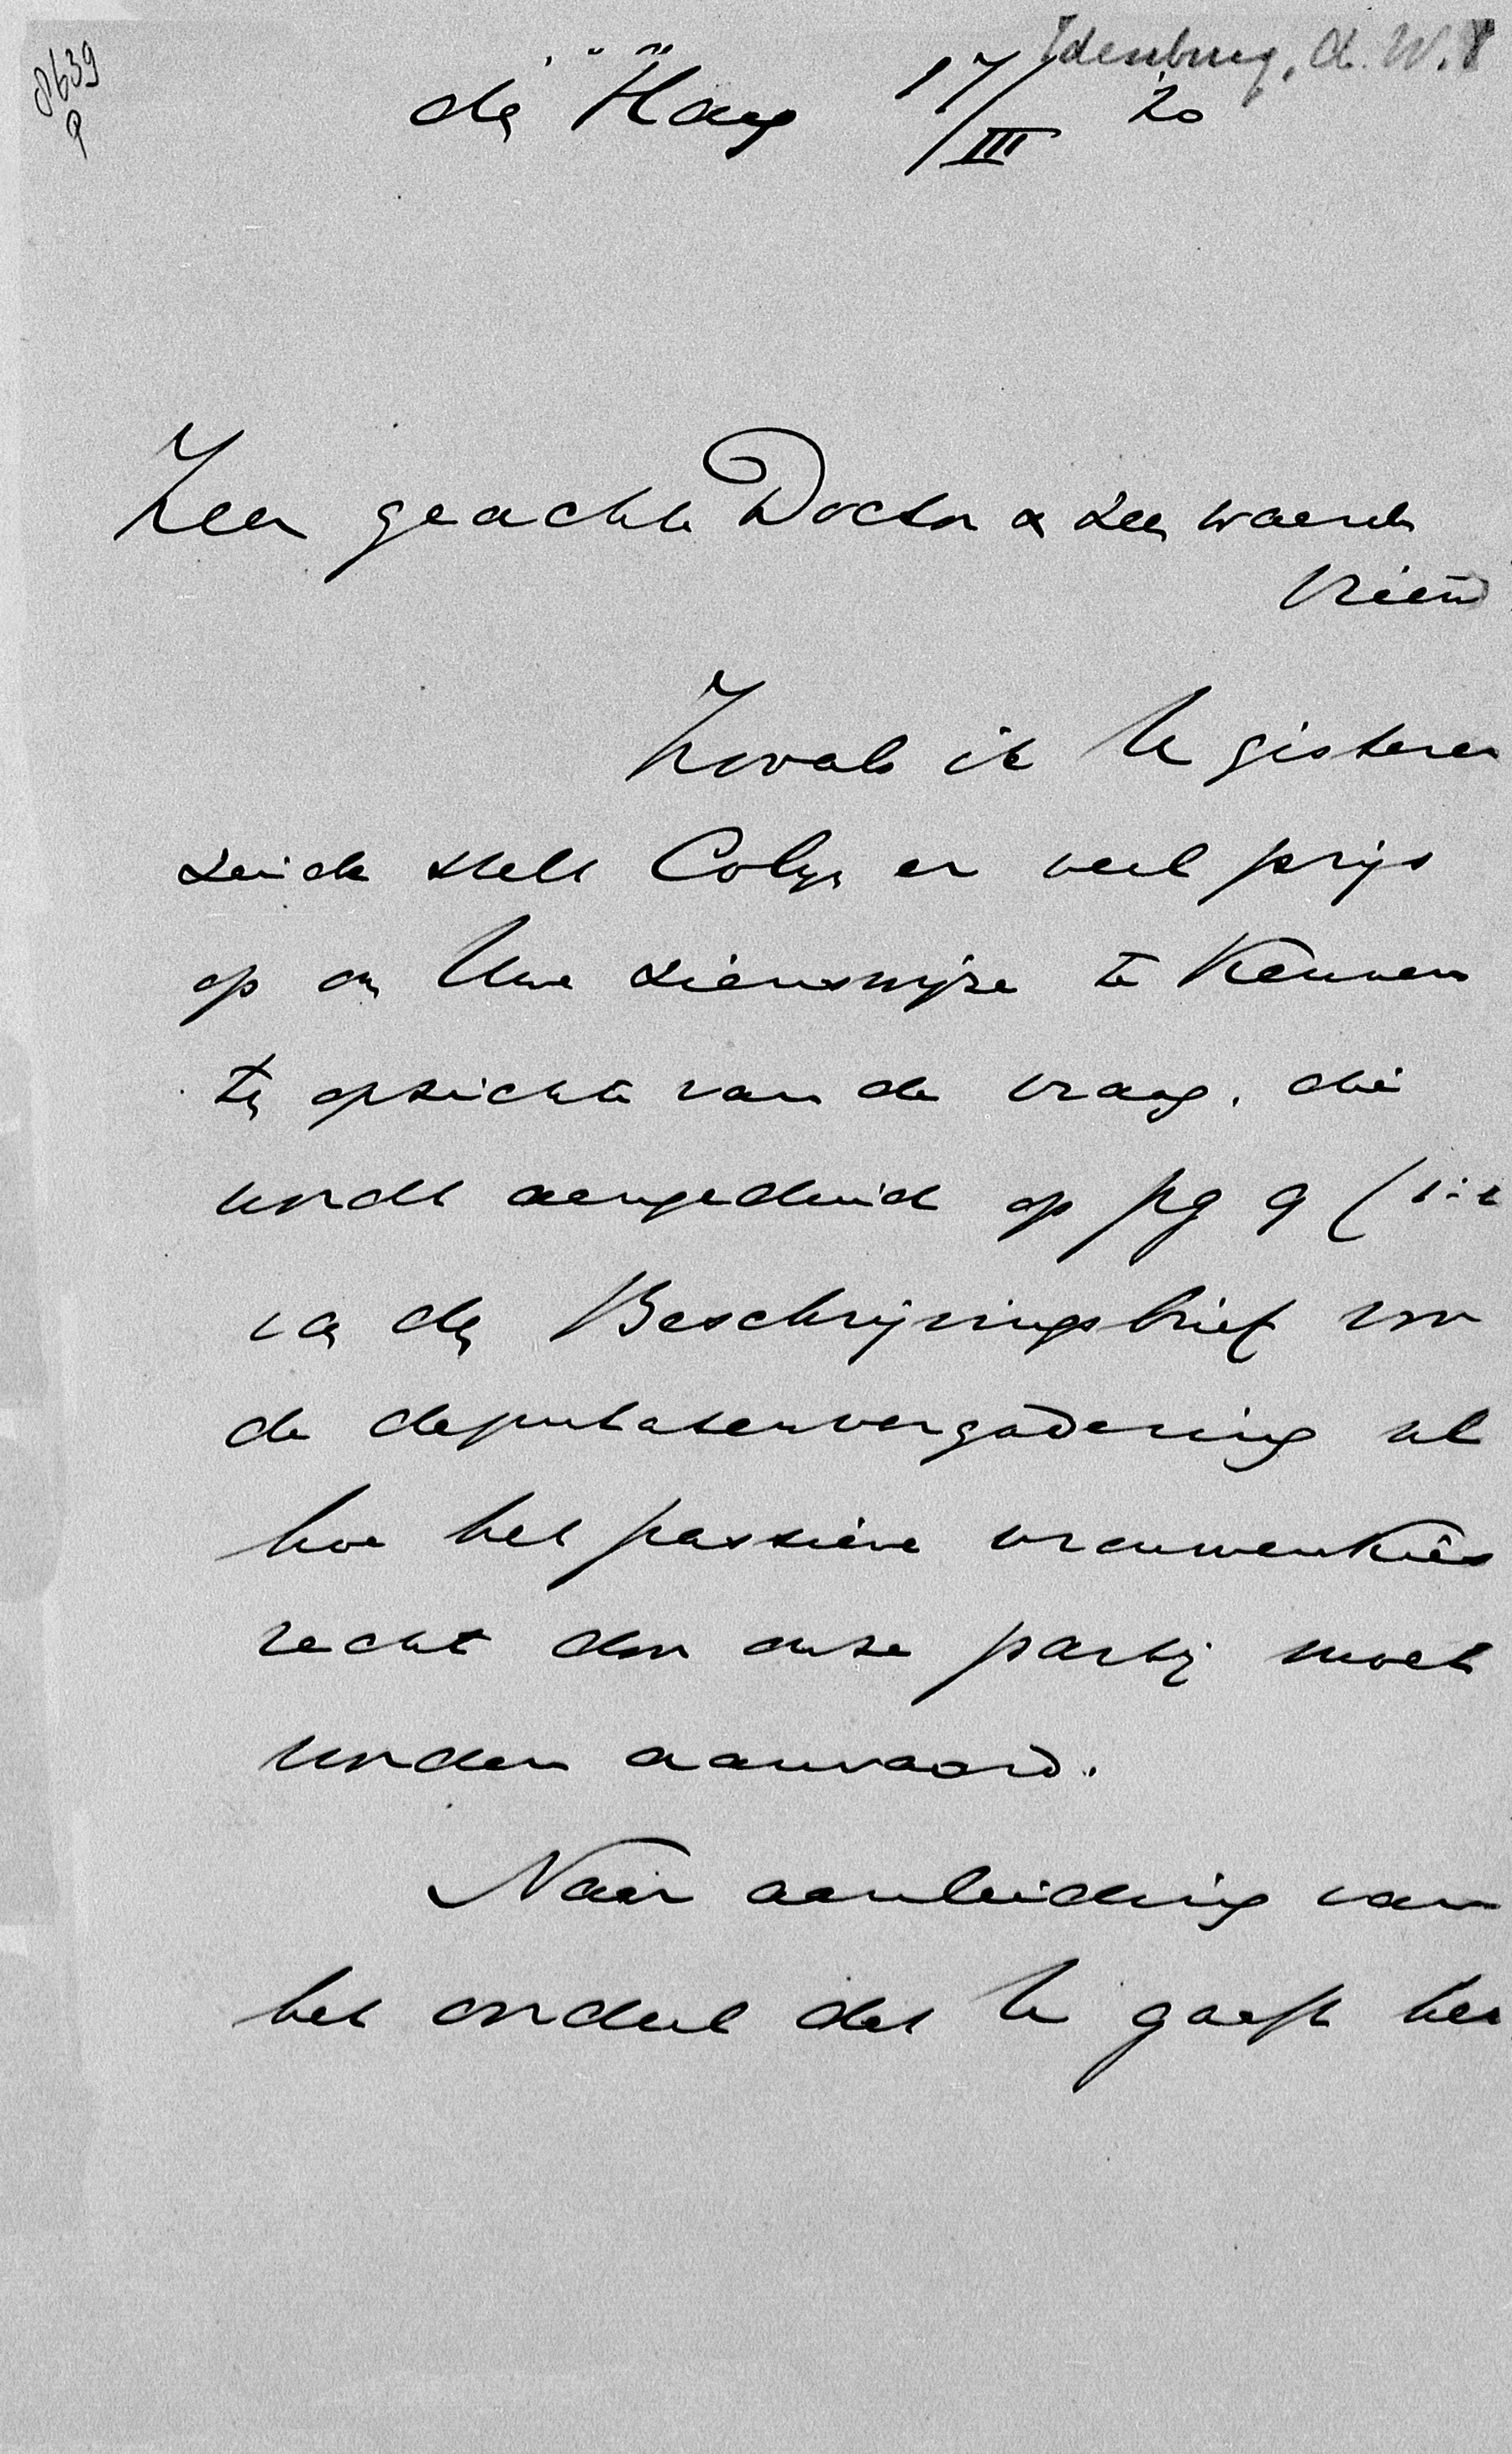 8639
P
Idenburg, A. W. F
den Haag 17/III 20
Zeer geachte Doctor & zeer waarde
Vriend
Zooals ik U gisteren
zeide stelt Colijn er veel prijs
op om Uwe zienswijze te kennen
ten opzichte van de vraag, die
wordt aangeduid op pg 9
van den Beschrijvingsbrief voor
de deputatenvergadering nl
hoe het passieve vrouwenkies
recht door onze partij moet
worden aanvaard.
Naar aanleiding van
het oordeel dat U gaaft